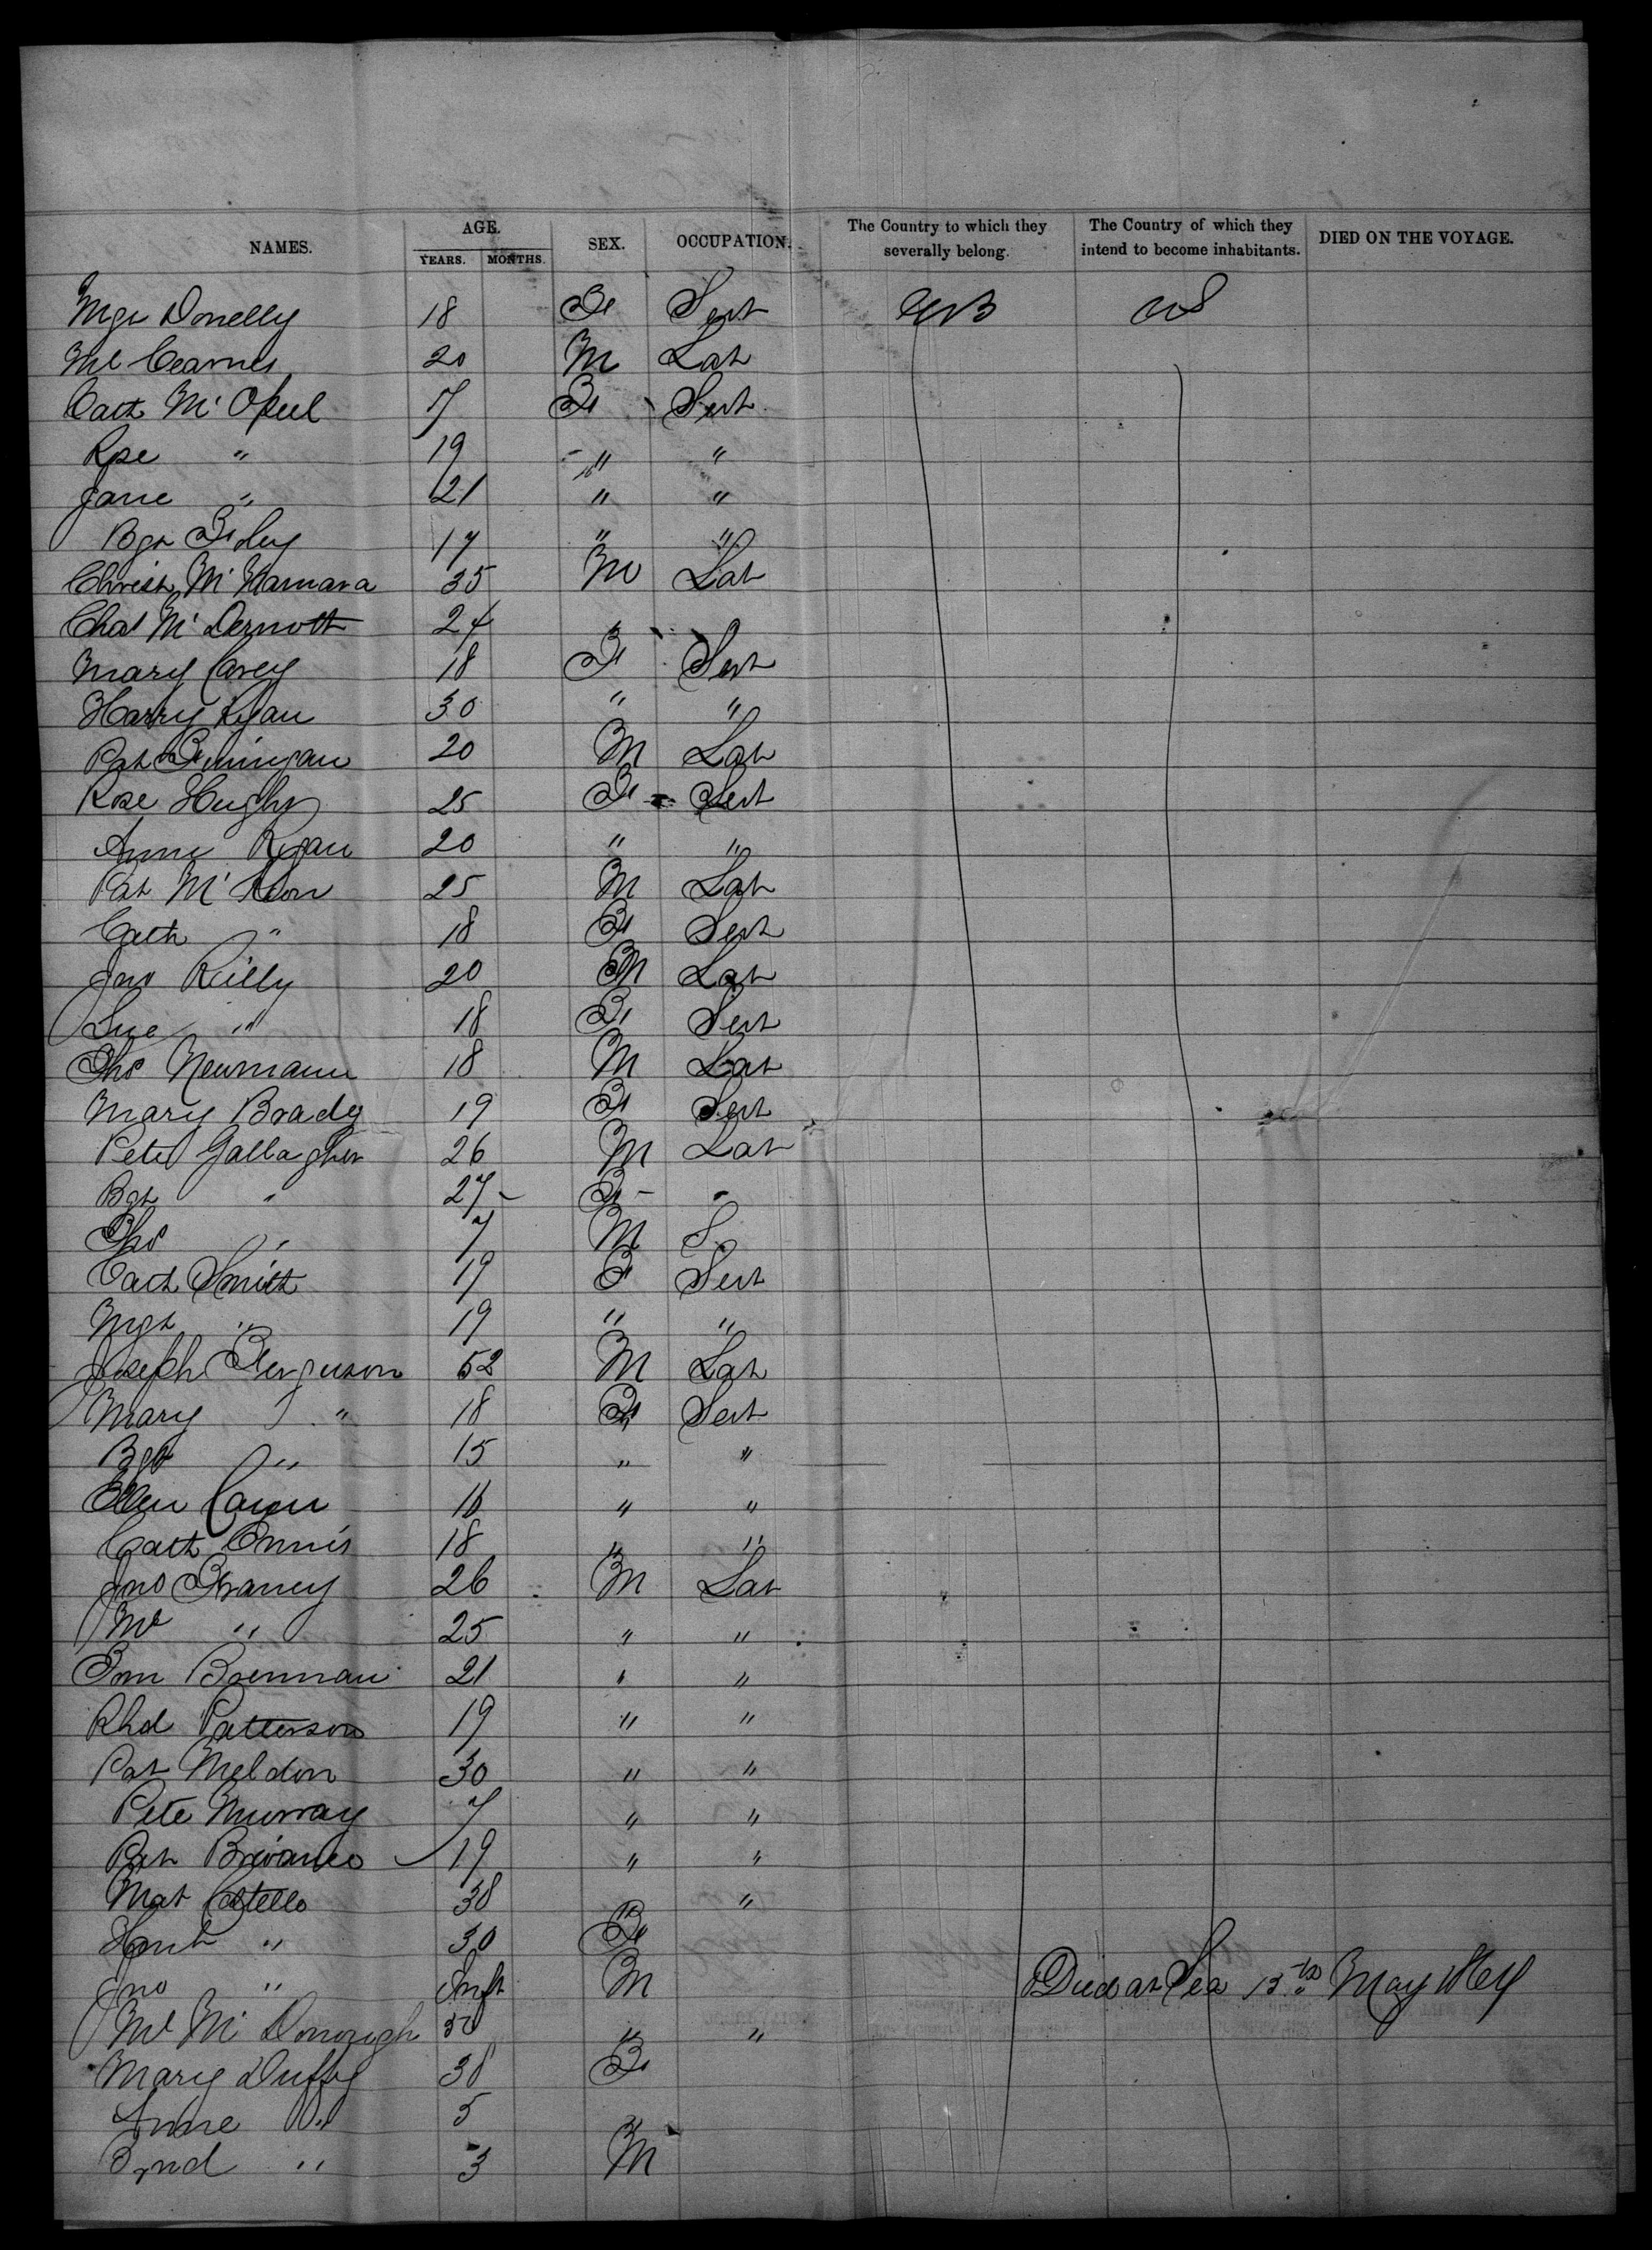 NAMES. AGE. YEARS. MONTHS. SEX. OCCUPATION. The Country to which they severally belong. The Country of which they intend to become inhabitants. DIED ON THE VOYAGE.
Mgt Donelly 18 F Sert GB US
Ml 20 M Lab
Cath Mc 17 F Sert
Rose " 19 " "
Jane " 21 " "
Bgt 17 " "
Christ Mc Namara 35 M Lab
Chas Mc Dermott 24
Mary Carey 18 F Sert
Harry Ryan 30 " "
Pat Finnigan 20 M Lab
Rose Hughs 25 F Sert
Anne Ryan 20 " "
Pat Mc Keon 25 M Lab
Cath " 18 F Sert
Jno Reilly 20 M Lab
Sue " 18 F Sert
Ths Newmann 18 M Lab
Mary Brady 19 F Sert
Peter Gallagher 26 M Lab
Bgt " 27 F "
Ths " 7 M S
Cath Smith 19 F Sert
Mgt " 19 " "
Joseph Ferguson 52 M Lab
Mary " 18 F Sert
Bgt " 15 " "
Ellen 16 " "
Cath Ennis 18 " "
Jno Graney 26 M Lab
Ml " 25 " "
Tom Brennan 21 " "
Rhd Patterson 19 " "
Pat Meldon 30 " "
Pete Murray 7 " "
Pat 19 " "
Mat Costello 38 " "
" 30 F
Jno " Inft M Died at Sea 13th May
Ml Mc Donough 50 " "
Mary Duffy 38 F
Anne " 5 "
Brnd " 3 M